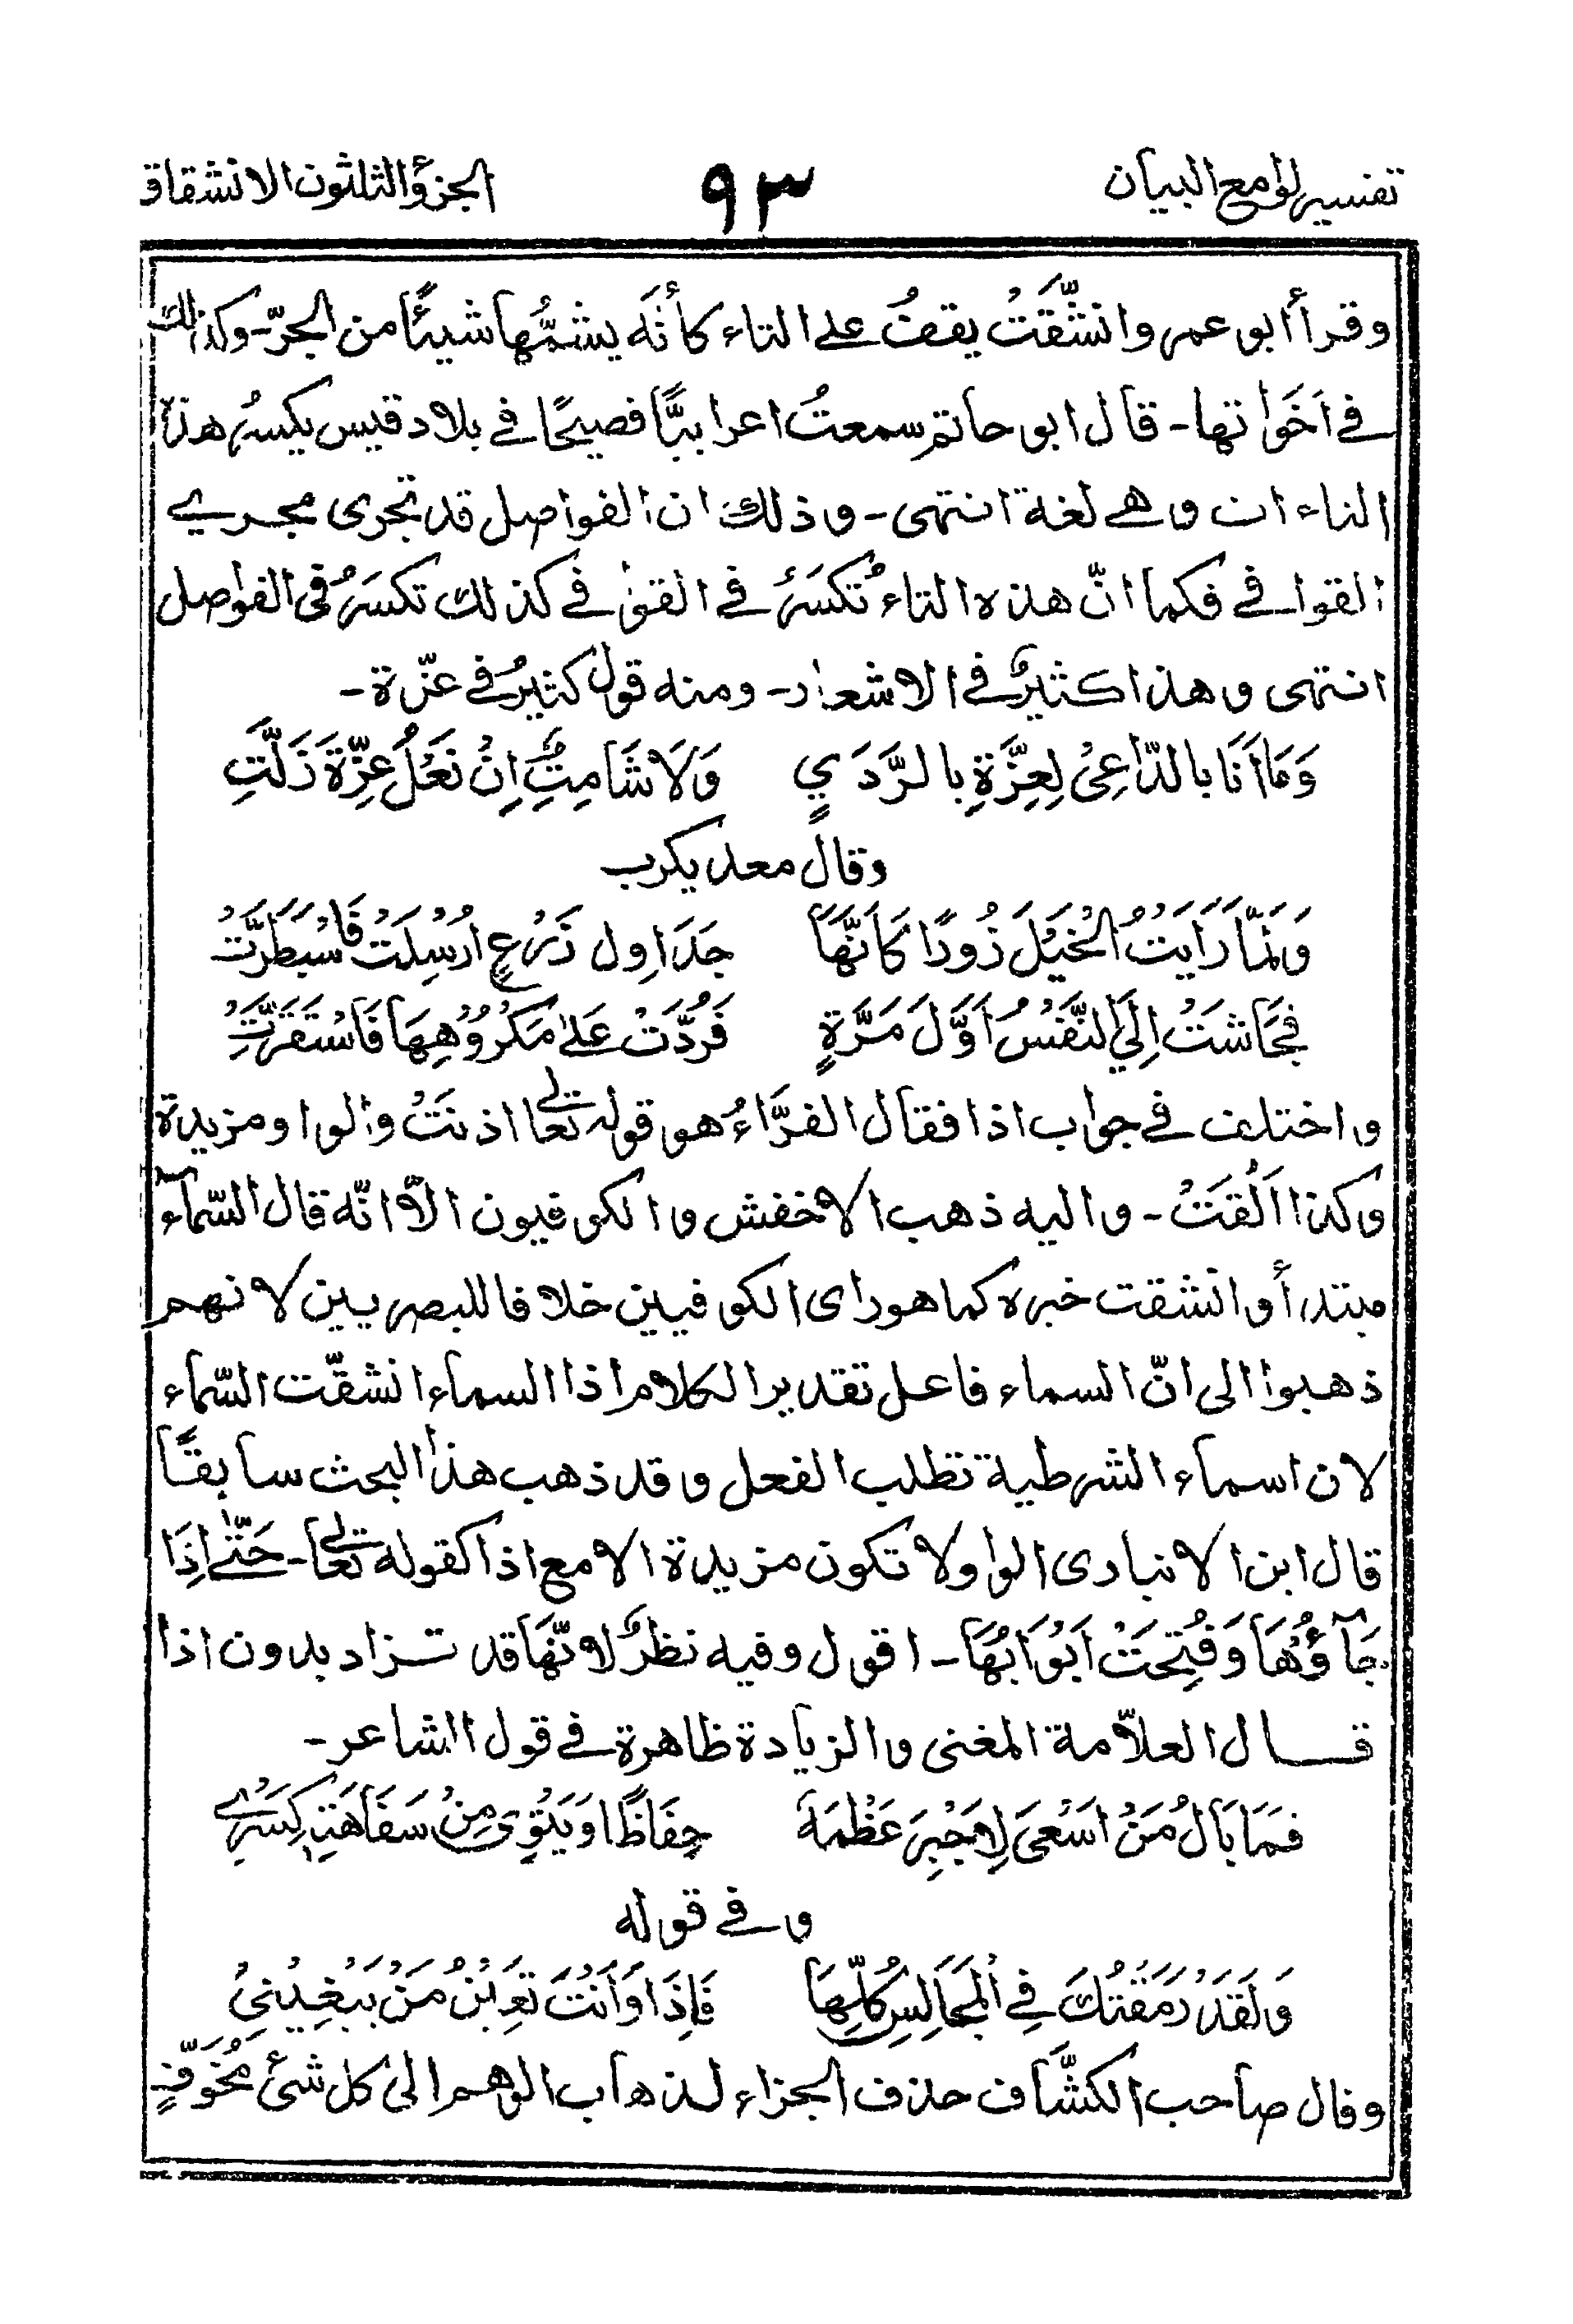 تفسير لوامع البيان ٩٣ الجزؤ الثلثون الانشقاق
وقرأ ابو عمر وانشّقتُ يقفُ على التاء كأنّه يشمُّها شيئًا من الجرّ - وكذلك
في اَخَواتها - قال ابو حاتم سمعتُ اعرابيًّا فصيحًا في بلاد قيس يكسرُ هذه
التاءات وهي لغة انتهى - وذلك ان الفواصل قد تجرى مجري
القوافي فكما انّ هذه التاءُ تُكسَرُ في القوافي كذلك تكسَرُ فى الفواصل
انتهى وهذا كثيرٌ في الاشعار - ومنه قول كثيرٌ في عزّة -
وَمَا اَنَا بالدّاعِىْ لِعِزَّةَ بِالرَّدَيٍ وَلَا شَامِتٍ اِنْ نَعْلُ عِزَّةَ زَلَّتِ
وقال معديكرب
وَلَمّا رَاَيتُ الْخَيْلَ زُورًا كَاَنَّهَا جَدَاوِل زَرْعٍ ارْسِلَتْ فَاسْبَطَرَّتْ
فَجَاشَتْ اِلَيَّ النَّفْسُ اَوَّلَ مَرَّةٍ فَرُدَّتْ عَلىٰ مَكْرُوْهِهَا فَاسْتَقَرَّتِ
واختلف في جواب اذا فقال الفرَّاءُ هو قوله تعالى اذنَتْ والواو مزيدة
وكذا اَلْقَتْ - واليه ذهب الاخفش والكوفيون الاّ انّه قال السّماء
مبتدأ وانشقت خبره كما هو راى الكوفيين خلافا للبصريين لانهم
ذهبوا الى انّ السماء فاعل تقدير الكلام اذا السماء انشقّت السّماء
لان اسماء الشرطية تطلب الفعل وقد ذهب هذا البحث سابقًا
قال ابن الانبارى الواو لا تكون مزيدة الا مع اذا كقوله تعالى - حَتّٰى اِذَا
جَآؤُهَا وَفُتِحَتْ اَبْوَابُهَا - اقول وفيه نظرٌ لانّهَا قد تزاد بدون اذا
قال العلاّمة المغنى والزيادة ظاهرة في قول الشاعر -
فمَا بَالُ مَنْ اسَعٰى لِاَجْبِرَ عَظْمَهُ حِفَاظًا وَيَنْوِىْ مِنْ سَفَاهَتِهٖ كَسْرِي
وفي قوله
وَلَقَدْ رَمَقْتُكَ فِي الْمَجَالِسِ كُلِّهَا فَاِذَا وَاَنْتَ تُعِيْنُ مَنْ يَبْغِيْنِىْ
وقال صاحب الكشّاف حذف الجزاء لذهاب الوهم الى كل شئ مُخَوِّفٍ